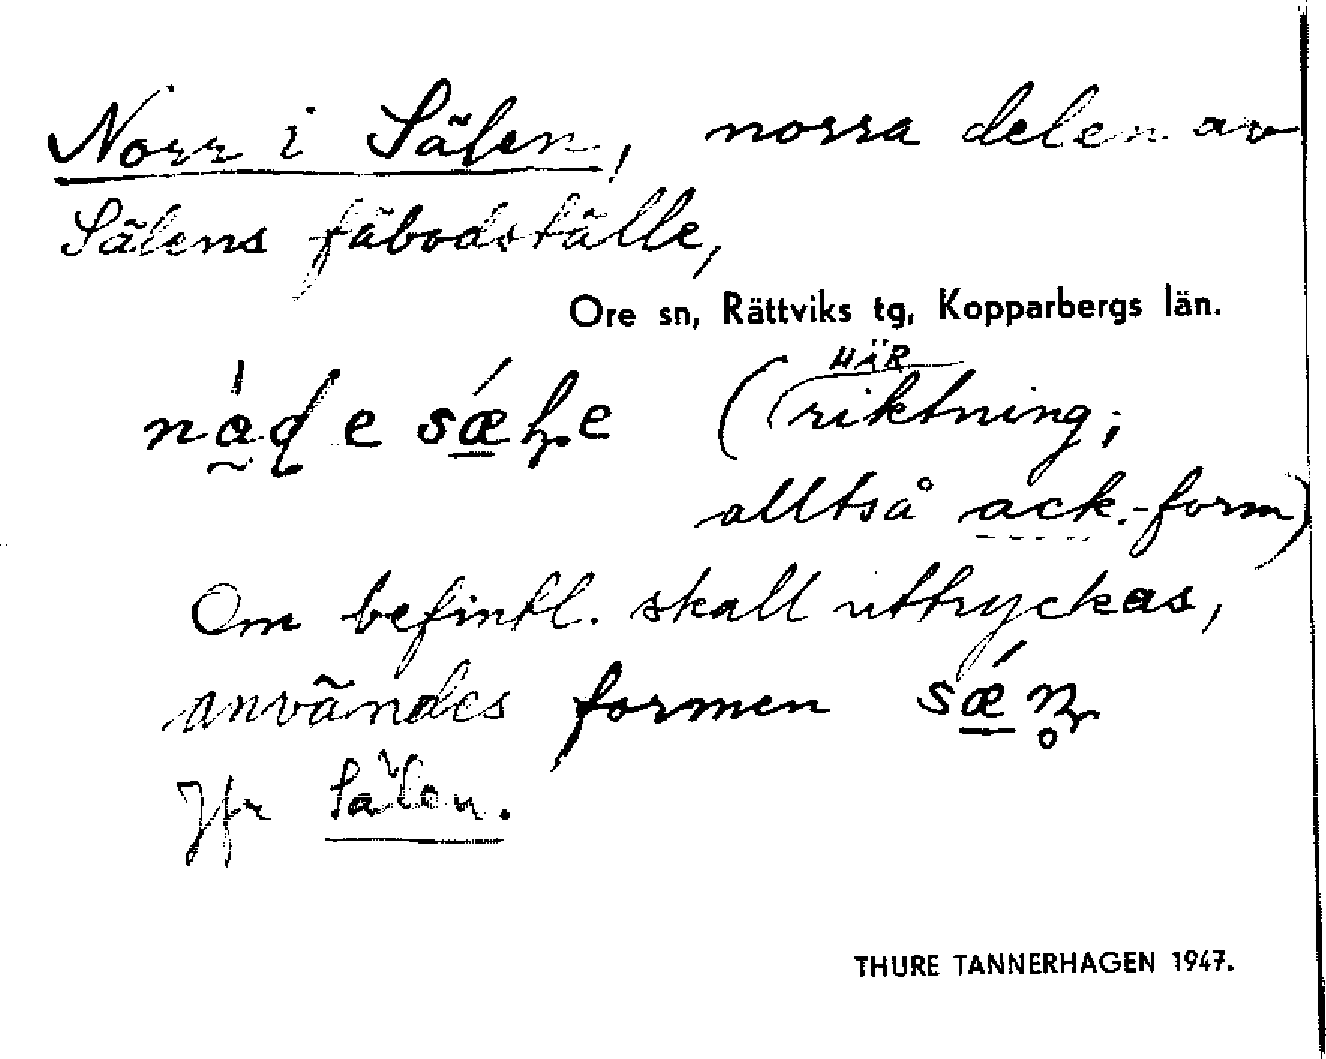 Norr i Sälen, norra delen av
Sälens fäbodställe,
Ore sn, Rättviks tg, Kopparbergs län.
HÄR
(riktning;
alltså ack.-form)
Om befintl. skall uttryckas,
användes formen
Jfr Sälen.
THURE TANNERHAGEN 1947.